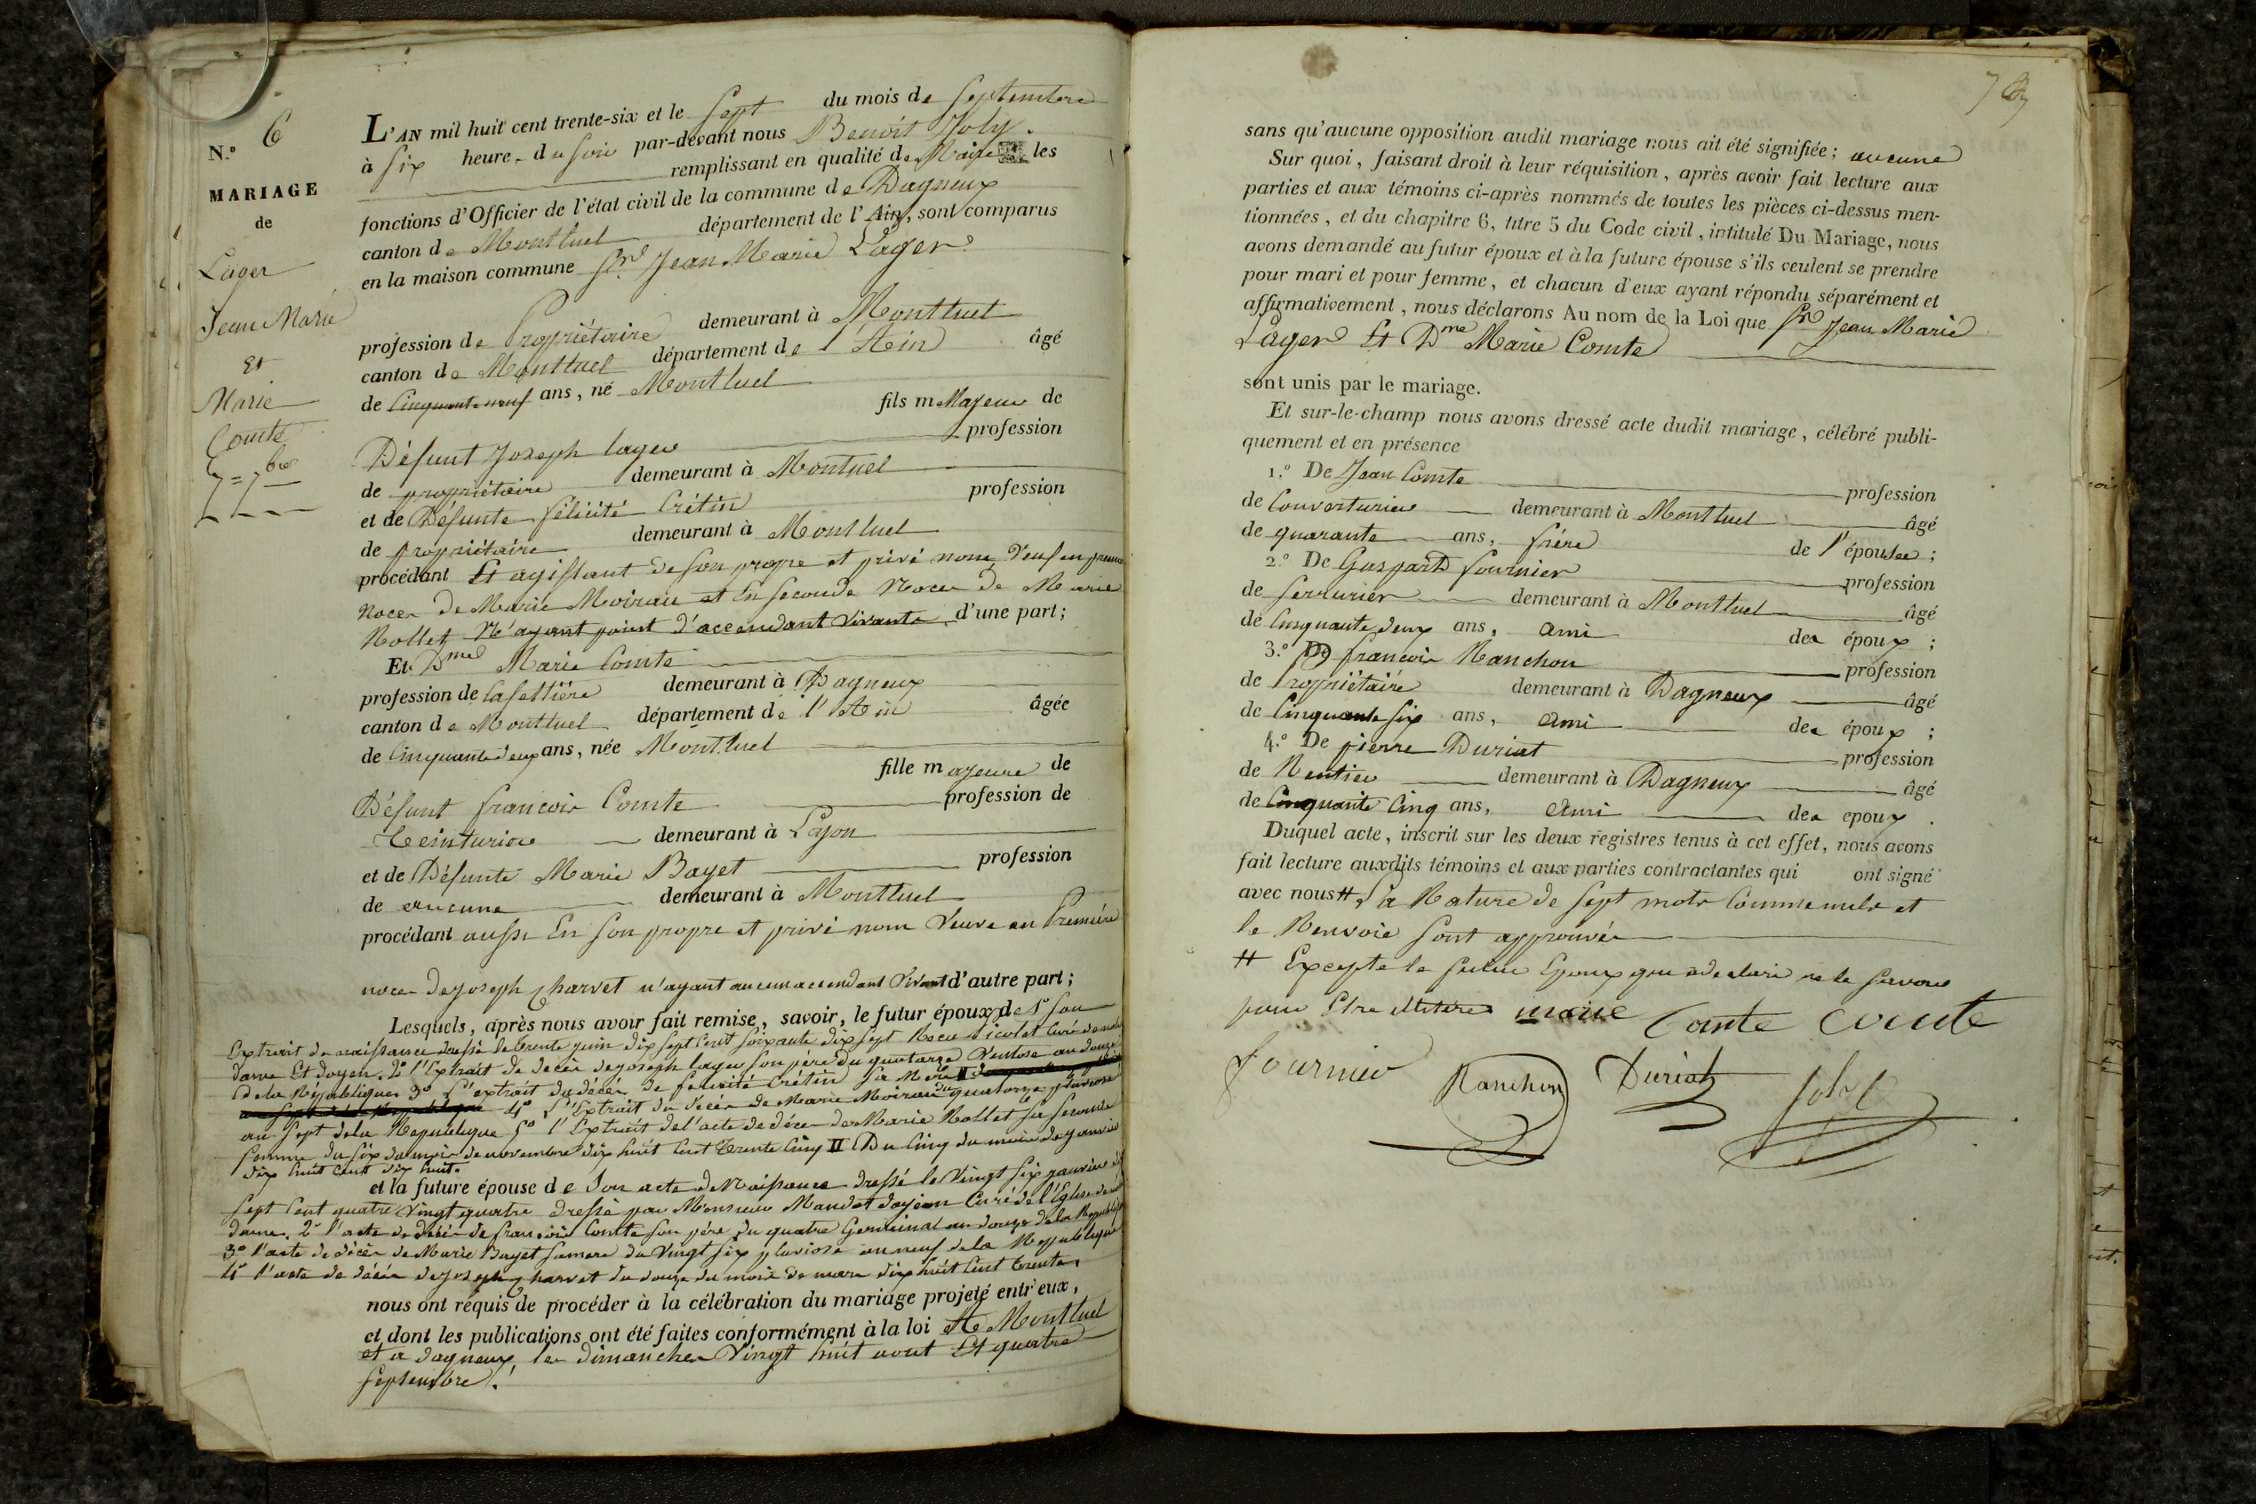 N.º 6
MARIAGE
de
Lager
Jean Marie
Et
Marie
Comte
7=7bre
L'AN mil huit cent trente-six et le Sept du mois de Septembre
à Six heures du Soir par-devant nous Benoit Joly
remplissant en qualité de Maire les
fonctions d'Officier de l'état civil de la commune de Dagneux
canton de Montluel département de l'Ain, sont comparus
en la maison commune Sr Jean Marie Lager
profession de Propriétaire demeurant à Montluel
canton de Montluel département de l'Ain âgé
de Cinquante neuf ans, né Montluel
fils m Majeur de
Défunt Joseph Lager profession
de propriétaire demeurant à Montluel
et de Défunte félicité Crétin profession
de propriétaire demeurant à Montluel
procédant Et agissant de son propre et privé nom, Veuf en premiere
Noces de Marie Moirau et En seconde Noces de Marie
Rollet N'ayant point d'accendant Vivants d'une part;
Et Dme Marie Comte
profession de Cafettière demeurant à Dagneux
canton de Montluel département de l'Ain âgée
de Cinquante deux ans, née Montluel
fille majeure de
Défunt francois Comte profession de
Teinturier demeurant à Lyon
et de Défunte Marie Bayet profession
de aucune demeurant à Montluel
procédant aussi En son propre et privé nom Veuve en Première
noces de Joseph Charvet n'ayant aucun accendant Vivant d'autre part;
Lesquels, après nous avoir fait remise, savoir, le futur époux de 1º Son
Extrait de naissance dressé le trente juin dix sept Cent soixante dix sept Nicolet Curé de notre
dame Et doyen. 2º l'Extrait de décès de joseph Lager son père du quatorze Ventose an douze
de la République 3º L'extrait du décés de félicité Crétin Sa Mère II
4º L'Extrait du décès de Marie Moiraud du quatorze pluviose
an Sept de la Republique 5º l'Extrait de l'acte de décès de Marie Rollet sa seconde
femme du six du mois de novembre dix huit Cent trente Cinq II Du Cinq du mois de janvier
dix huit Cent dix huit.
et la future épouse de Son acte de Naissance dressé le Vingt six janvier dix
sept Cent quatre Vingt quatre dressé par Monsieur Mandet doyen Curé de l'Eglise de notre
dame. 2º l'acte de décès de francois Comte son père du quatre Germinal an douze de la République
3º l'acte de décès de Marie Bayet sa mere du Vingt six pluviose an neuf de la République
4º l'acte de décés de joseph Charvet du douze du mois de mars dix huit Cent trente,
nous ont requis de procéder à la célébration du mariage projeté entr'eux,
et dont les publications ont été faites conformément à la loi A Montluel
et a dagneux, les dimanches Vingt huit aout Et quatre
Septembre.
sans qu'aucune opposition audit mariage nous ait été signifiée; aucune
Sur quoi, faisant droit à leur réquisition, après avoir fait lecture aux
parties et aux témoins ci-après nommés de toutes les pièces ci-dessus men-
tionnées, et du chapitre 6, titre 5 du Code civil, intitulé Du Mariage, nous
avons demandé au futur époux et à la future épouse s'ils veulent se prendre
pour mari et pour femme, et chacun d'eux ayant répondu séparément et
affirmativement, nous déclarons Au nom de la Loi que Sr Jean Marie
Lager Et Dme Marie Comte
sont unis par le mariage.
Et sur-le-champ nous avons dressé acte dudit mariage, célébré publi-
quement et en présence
1.º De Jean Comte profession
de Couverturier demeurant à Montluel âgé
de quarante ans, frère de l'épousee;
2.º De Gaspard fournier profession
de Serrurier demeurant à Montluel âgé
de Cinquante deux ans, ami des époux;
3.º De francois Ranchon profession
de Propriétaire demeurant à Dagneux âgé
de Cinquante six ans, ami des époux;
4.º De pierre Duriat profession
de Rentier demeurant à Dagneux âgé
de Cinquante Cinq ans, ami des epoux.
Duquel acte, inscrit sur les deux registres tenus à cet effet, nous avons
fait lecture auxdits témoins et aux parties contractantes qui ont signé
avec nous #. La Rature de sept mots Comme nuls et
le Renvoie Sont approuvés
# Excepté le futur Epoux qui a declaré ne le savoir
pour Etre illitéré marie Comte Comte
fournier Ranchon Duriat Joly